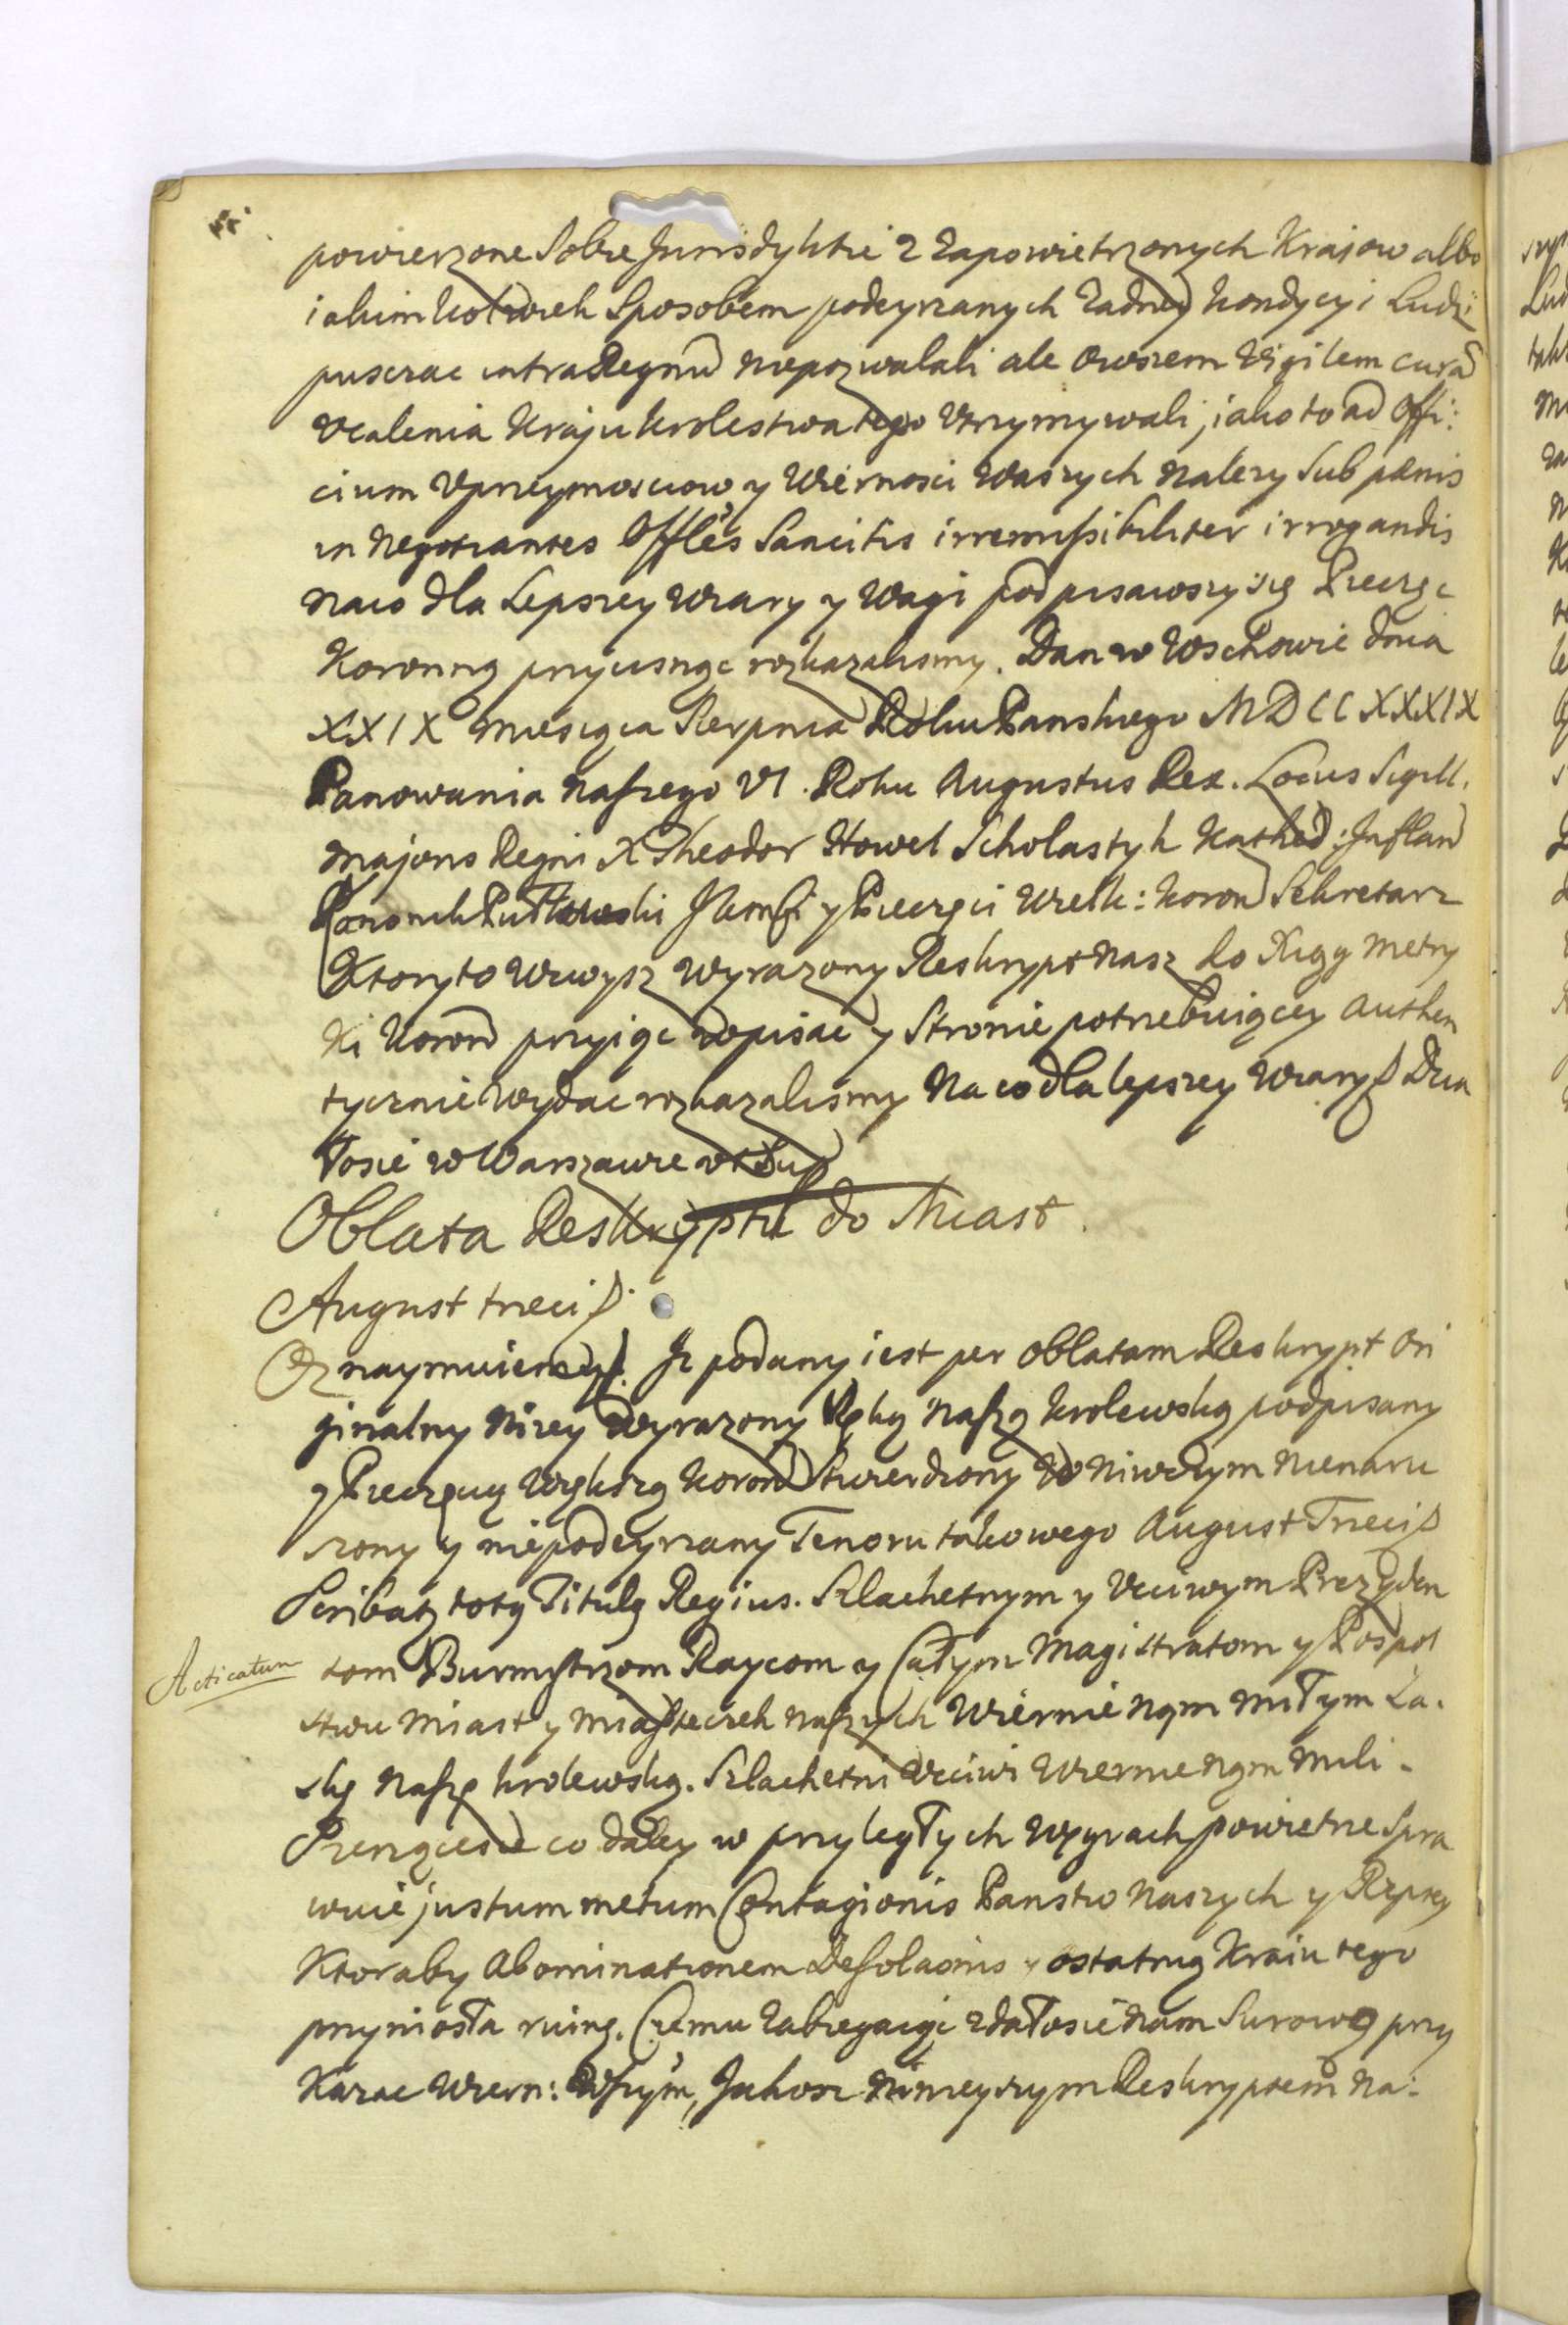 powierzone Sobie Jurisdyktie z Zapowietrzonych Krajow albo
iakimkolwiek Sposobem podeyrzanych Zadney kondycyi Ludzi
puszczac intra Regnũ niepozwalali ale owszem Vigilem curã
Vcalenia Kraju krolestwa tego Vtrzymywali, jako to ad Offi:
cium Vprzeymosciow, y Wiernosci Waszych nalezy Sub pænis
in negotiantes Offles Sancitis irremissibiliter irrogandis
naco dla Lepszey Wiary y Wagi podpisawszy się Pieczęc
Koronną przycisnąc rozkazalismy. Dan w Wschowie dnia
XXIX Miesiąca Sierpnia Roku Panskiego MDCCXXXIX
Panowania naszego VI. Roku Augustus Rex. Locus Sigill.
majoris Regni X Theodor Howel Scholastyk Kathed: Infland
Kanonik Pułtowski J Kmsci y Pieczęci Wielk: koron Sekretarz
Ktoryto Wiwysz Wyrazony Reskrypt nasz do Xiąg Metry
Ki Koron przyiąc wpisac y Stronie potrzebuiącey Authen
tycznie Wydac rozkazalismy Na co dla lepszey Wiary Dzia
łosie w Warszawie
Oblata Reskryptu do Miast.
August trzeci
Oznaymuiemy Jz podany iest per oblatam Reskrypt Ori
ginalny Nizey Wyrazony Ręką naszą krolewską podpisany
y Pieczęcią Większą koron Stwierdzony W niwczym nienaru
szony y niepodeyrzany Tenoru takowego August Trzeci
Scribatz totą Titulą Regius. Szlachetnym y Vcciwym Prezyden
tom Burmystrzom Raycom y Całym Magistratom y Pospol
stwu Miast y Miasteczek naszych Wiernie nąm miłym La.
Acticatum
skę naszę krolewską. Szlachetni Vcciwi Wiernie nąm mili.
Szerząciesie co daley w przyległych Węgrach powietrze Spra
wuie justum metum Contagionis Panstw naszych y Rzptey
Ktoraby Abominationem Desolaōnis y ostatnią Kraiu tego
przyniosła ruinę. Czemu Zabiegaiąc zdałosie nam Surowo przy
Kazac Wiern: Wszym, Jakosz ninieyszym Reskryptem na: